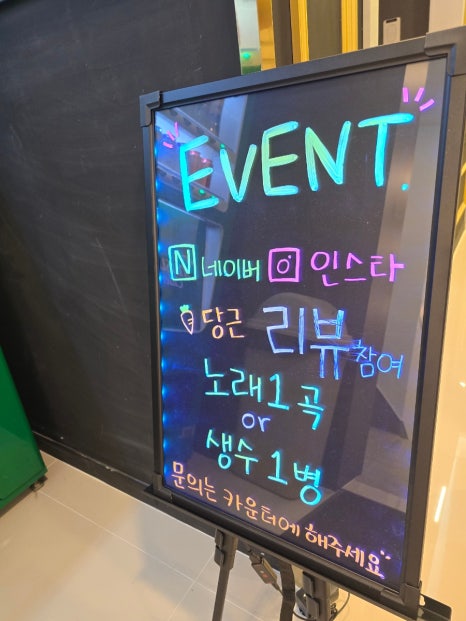 EVENT.
N 네이버 인스타
당근 리뷰 참여
노래 1곡
or
생수 1병
문의는 카운터에 해주세요